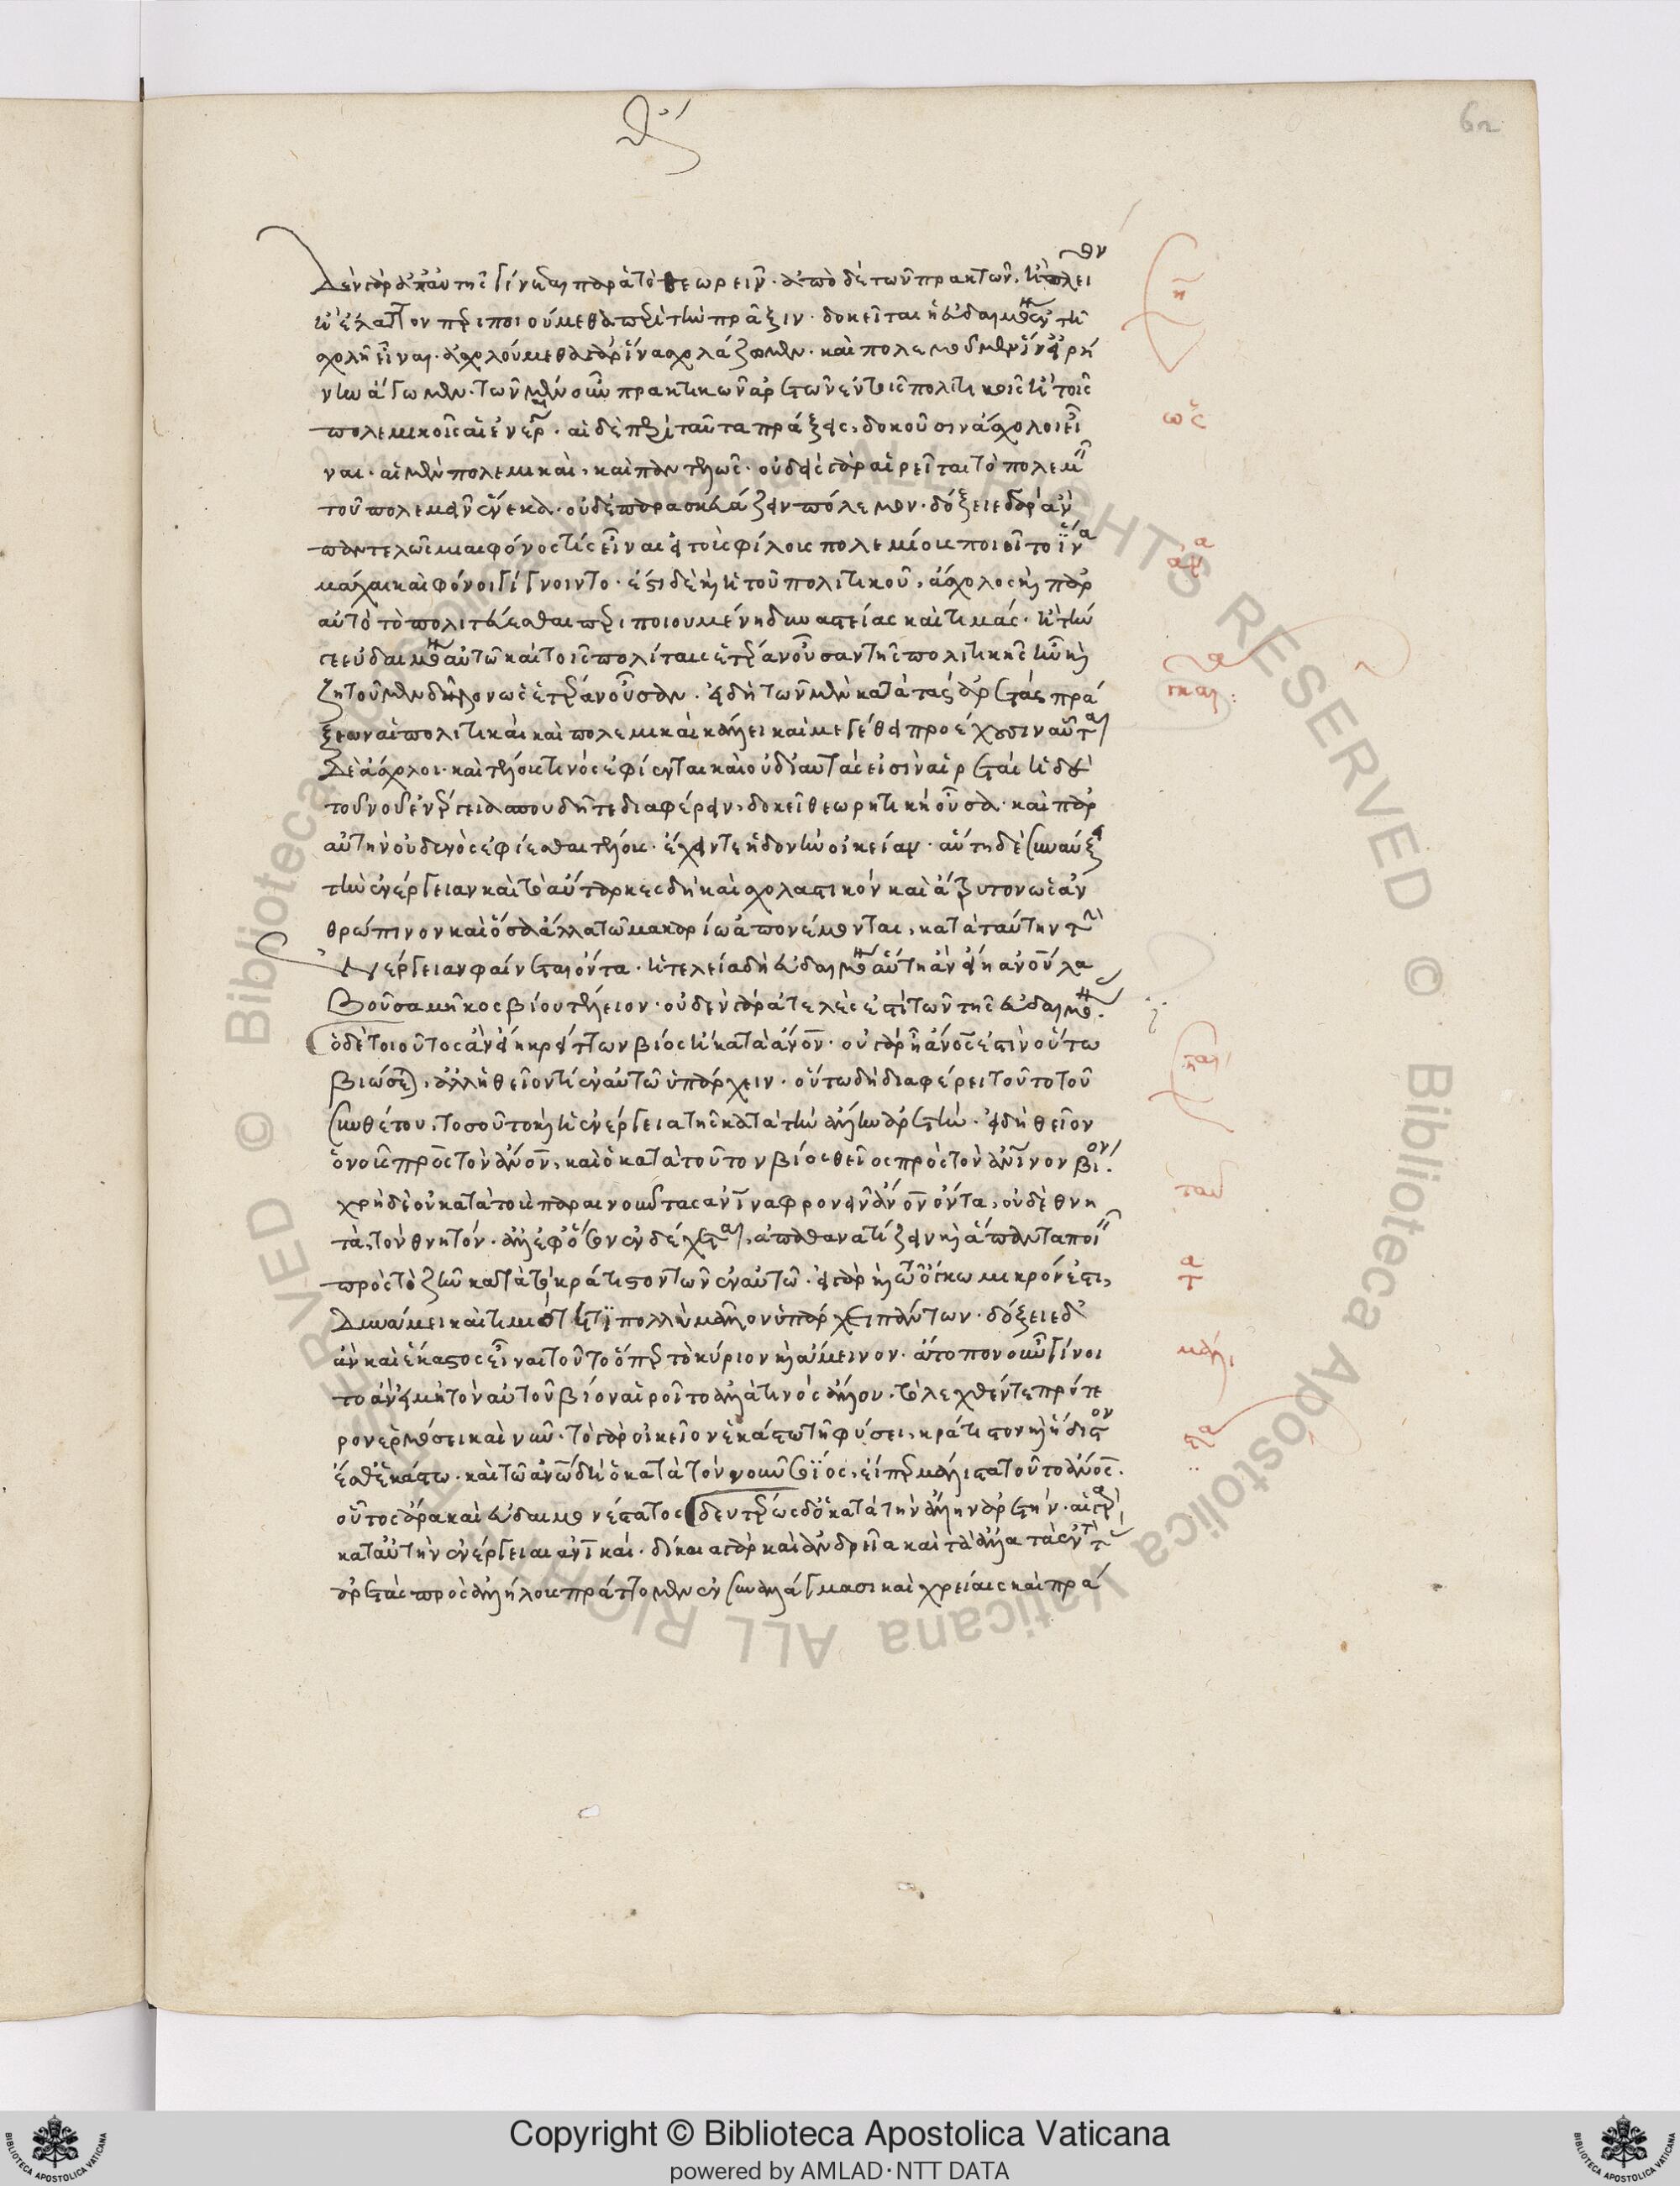 Δὲν γὰρ ἀπ' αὐτῆς γίνεται παρὰ τὸ θεωρεῖν· ἀπὸ δὲ τῶν πρακτῶν, ἢ πλεῖον
ἢ ἔλαττον περιποιούμεθα περὶ τὴν πρᾶξιν· δοκεῖ τε ἡ εὐδαιμονία ἐν τῇ
σχολῇ εἶναι· ἀσχολούμεθα γὰρ ἵνα σχολάζωμεν· καὶ πολεμοῦμεν ἵν' εἰρή
νην ἄγωμεν· τῶν μὲν οὖν πρακτικῶν ἀρετῶν ἐν τοῖς πολιτικοῖς ἢ τοῖς
πολεμικοῖς αἱ ἐνέργειαι· αἱ δὲ περὶ ταῦτα πράξεις, δοκοῦσιν ἄσχολοι εἶ
ναι· αἱ μὲν πολεμικαὶ, καὶ παντελῶς· οὐδεὶς γὰρ αἱρεῖται τὸ πολεμεῖν
τοῦ πολεμεῖν ἕνεκα· οὐδὲ παρασκευάζειν πόλεμον· δόξειε γὰρ ἂν
παντελῶς μιαιφόνος τίς εἶναι εἰ τοὺς φίλους πολεμίους ποιοῖτο ἵνα
μάχαι καὶ φόνοι γίγνοιντο· ἔστι δὲ καὶ ἡ τοῦ πολιτικοῦ, ἄσχολος καὶ παρ'
αὐτὸ τὸ πολιτεύεσθαι περιποιουμένη δυναστείας καὶ τιμάς· ἢ τήν
γε εὐδαιμονίαν αὐτῶ καὶ τοῖς πολίταις ἑτέραν οὖσαν τῆς πολιτικῆς ἣν καὶ
ζητοῦμεν δῆλον ὡς ἑτέραν οὖσαν· εἰ δὴ τῶν μὲν κατὰ τὰς ἀρετὰς πρά
ξεων αἱ πολιτικαὶ καὶ πολεμικαὶ κάλλει καὶ μεγέθει προέχουσιν αὗται
δὲ ἄσχολοι· καὶ τέλους τινὸς ἐφίενται καὶ οὐ δι' αὑτάς εἰσιν αἱρεταί ἡ δὲ
τοῦ νοῦ ἐνέργεια σπουδῆ τε διαφέρειν, δοκεῖ θεωρητικὴ οὖσα· καὶ παρ'
αὐτὴν οὐδενὸς ἐφίεσθαι τέλους· ἔχειν τε ἡδονὴν οἰκείαν· αὕτη δὲ συναύξει
τὴν ἐνέργειαν καὶ τὸ αὔταρκες δὴ καὶ σχολαστικόν καὶ ἄτρυτον ὡς ἀν
θρώπινον καὶ ὅσα ἄλλα τῶ μακαρίω ἀπονέμονται, κατὰ ταύτην τὴν
ἐνέργειαν φαίνεται ὄντα· ἡ τελεία δὴ εὐδαιμονία αὕτη ἂν εἴη ἀνοῦ λα
βοῦσα μῆκος βίου τέλειον· οὐδὲν γὰρ ἀτελές ἐστι τῶν τῆς εὐδαιμονίας·
ὁ δὲ τοιοῦτος ἂν εἴη κρείττων βίος ἢ κατὰ ἄνον· οὐ γὰρ ἧ ἄνος ἐστιν οὕτω
βιώσεται, ἀλλ' ἧ θεῖον τί ἐν αὐτῶ ὑπάρχει· ὅσω δὴ διαφέρει τοῦτο τοῦ
συνθέτου, τοσοῦτο καὶ ἡ ἐνέργεια τῆς κατὰ τὴν ἄλλην ἀρετήν· εἰ δὴ θεῖον
ὁ νοῦς πρὸς τὸν ἄνον, καὶ ὁ κατὰ τοῦτον βίος θεῖος πρὸς τὸν ἀνινον βίον·
χρὴ δὲ οὐ κατὰ τοὺς παραινοῦντας ἀνινα φρονεῖν ἄνον ὄντα, οὐδὲ θνη
τὰ, τὸν θνητόν· ἀλλ' ἐφ' ὅσον ἐνδέχεται, ἀπαθανατίζειν καὶ ἅπαντα ποιεῖν
πρὸς τὸ ζῆν κατὰ τὸ κράτιστον τῶν ἐν αὐτῶ· εἰ γὰρ καὶ τῶ ὄγκω μικρόν ἐστι,
δυνάμει καὶ τιμιότητι πολλὺ μᾶλλον ὑπάρχει πάντων· δόξειε δ'
ἂν καὶ ἕκαστος εἶναι τοῦτο ὅπερ τὸ κύριον καὶ ἄμεινον· ἄτοπον οὖν γίνοι
το ἂν εἰ μὴ τὸν αὑτοῦ βίον αἱροῖτο ἀλλά τινός ἄλλου· τὸ λεχθέν τε πρότε
ρον ἁρμόσει καὶ νῦν· τὸ γὰρ οἰκεῖον ἑκάστω τῆ φύσει, κράτιστον καὶ ἥδιστον
ἐσθ' ἑκάστω· καὶ τῶ ἀνω δὴ ὁ κατὰ τὸν νοῦν βίος, εἴπερ μάλιστα τοῦτο ἄνος·
οὗτος ἄρα καὶ εὐδαιμονέστατος δευτέρως δ' ὁ κατὰ τὴν ἄλλην ἀρετήν· αἱ γὰρ
κατ' αὐτὴν ἐνέργειαι ἀνικαί· δίκαια γὰρ καὶ ἀνδρεῖα καὶ τὰ ἄλλα τὰ ἐν τὰς
ἀρετὰς πρὸς ἀλλήλους πράττομεν ἐν συναλλάγμασι καὶ χρείαις καὶ πρά